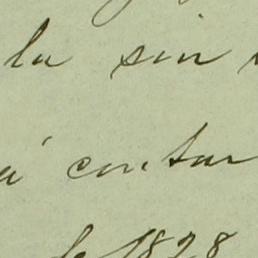 la sin
á contar
de 1828